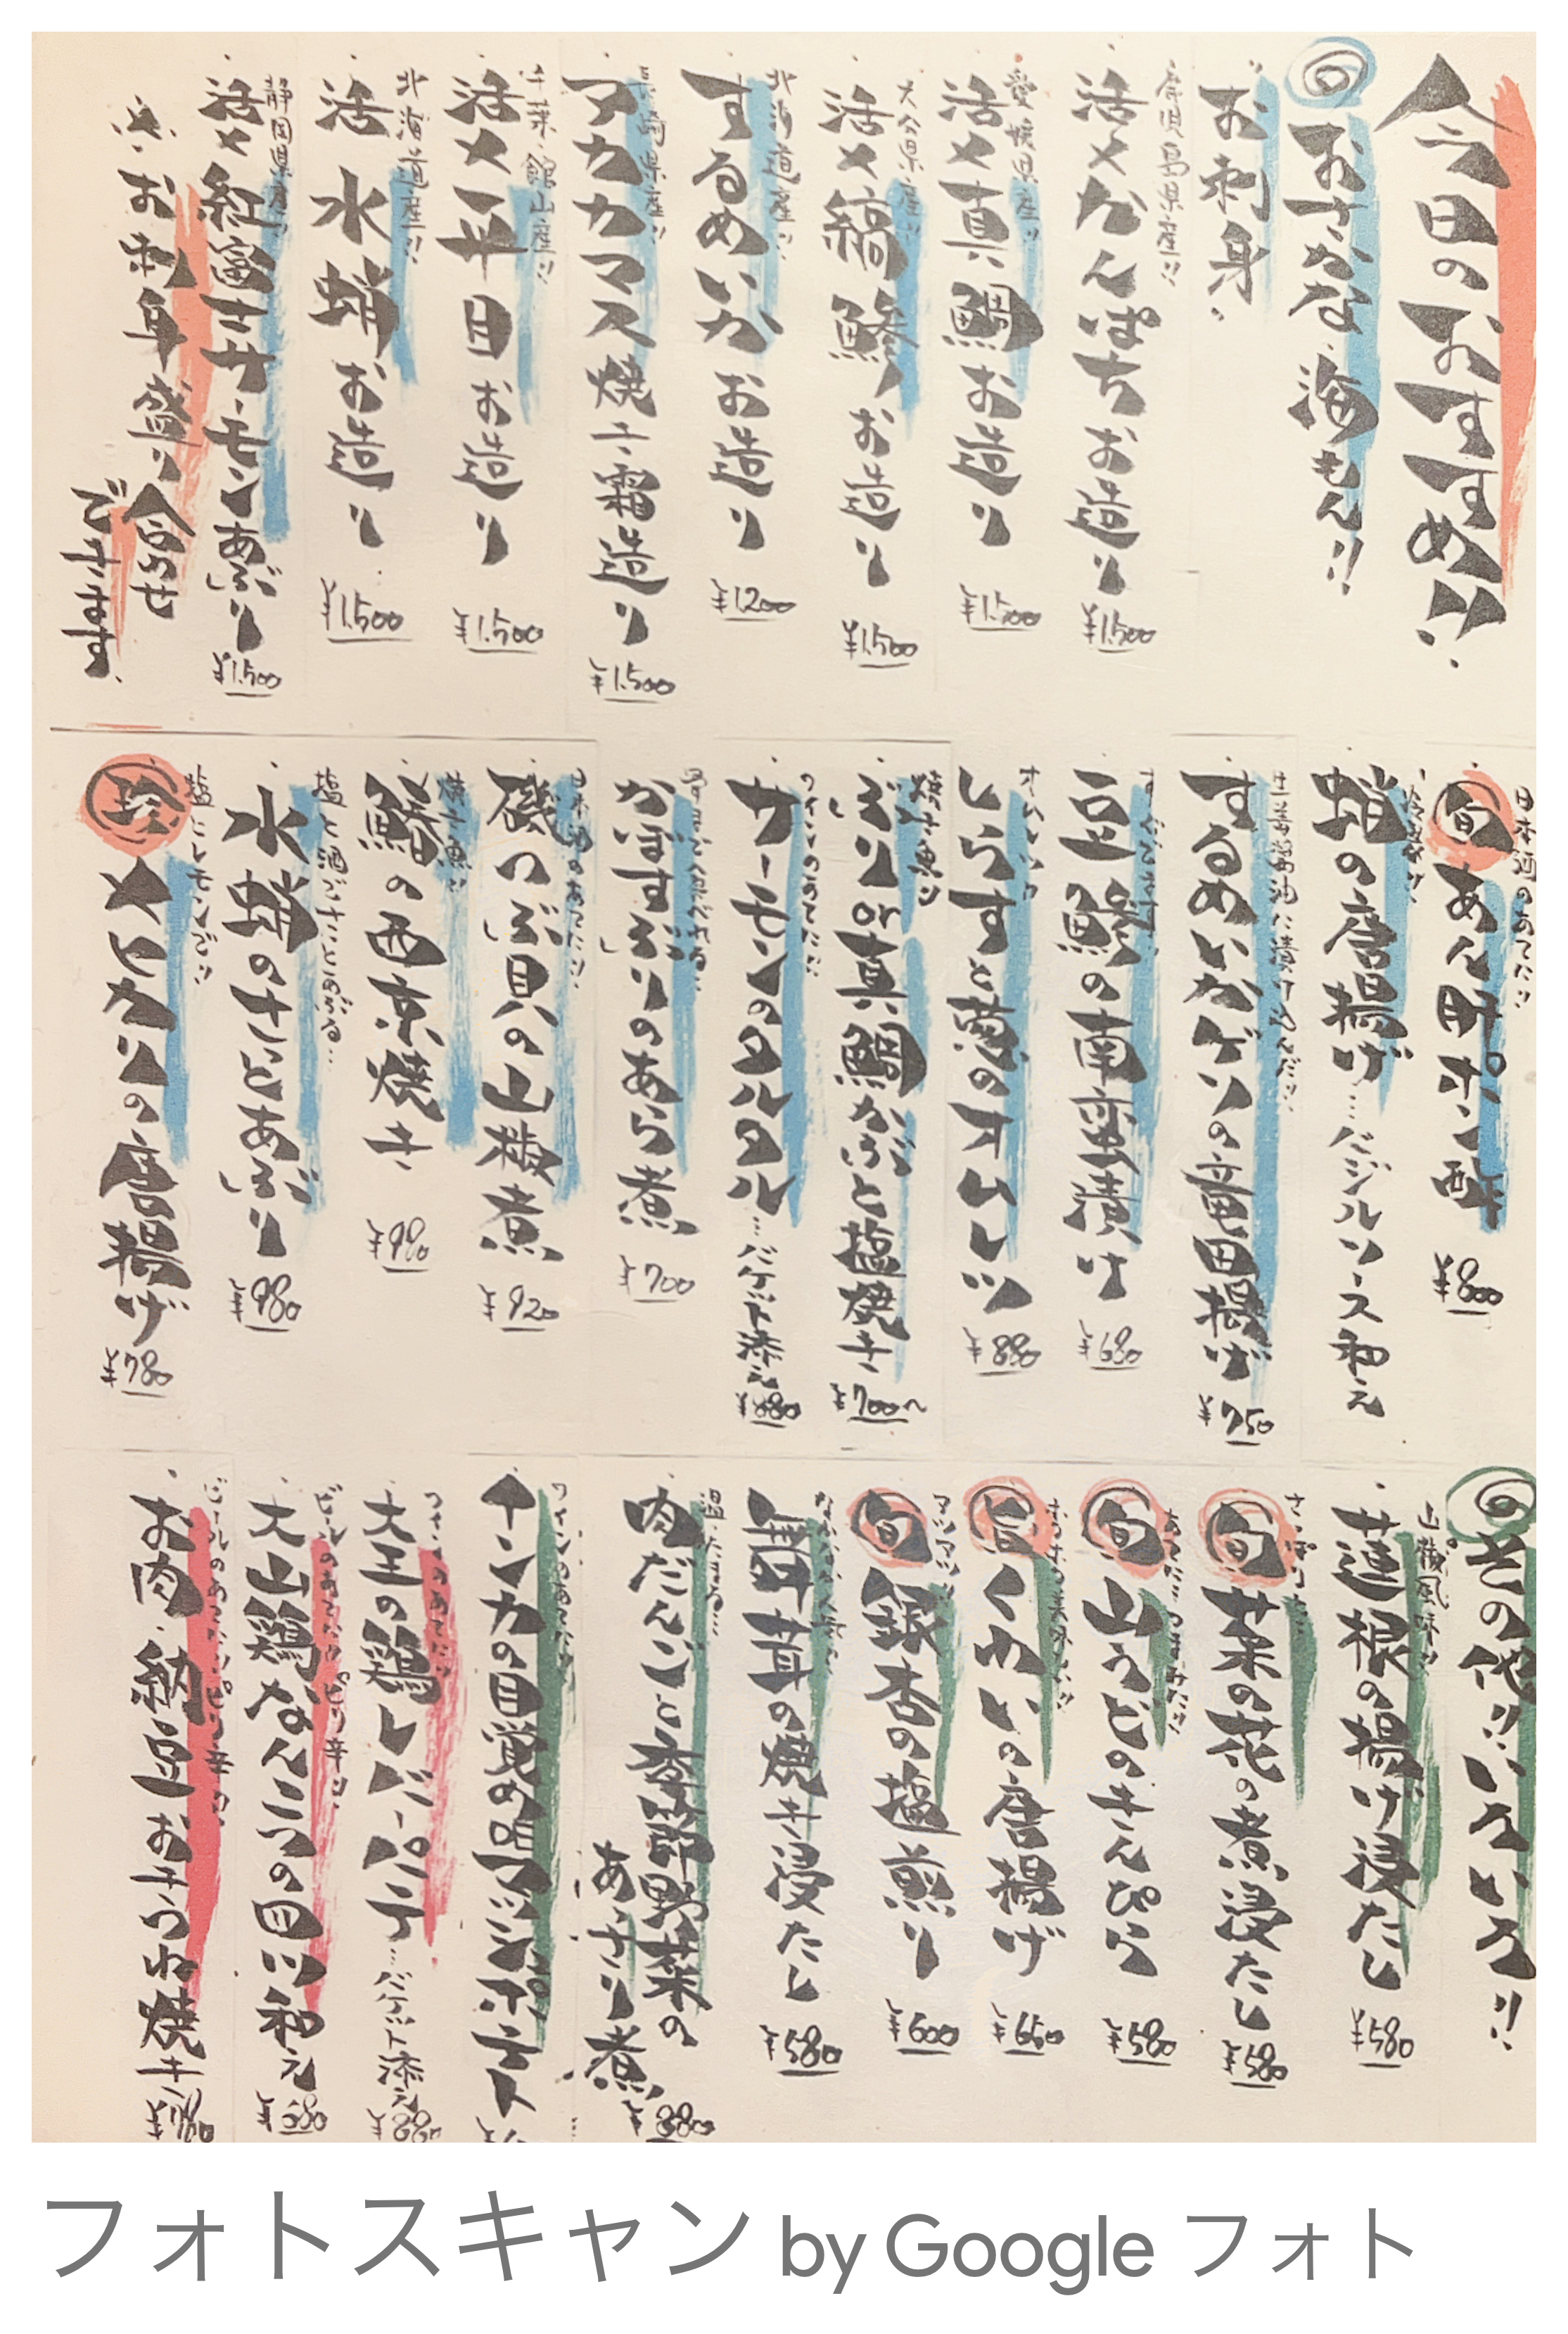 今日のおすすめ!!
おさかな、海もん!!
お刺身
鹿児島県産!!
活〆かんぱちお造り
¥1.500
愛媛県産!!
活〆真鯛お造り
¥1.500
大分県産!!
活〆縞鯵お造り
¥1.500
北海道産!!
するめいかお造り
¥1200
長崎県産!!
アカカマス焼き霜造り
¥1.500
千葉・館山産!!
活〆平目お造り
¥1.500
北海道産!!
活水蛸お造り
¥1.500
静岡県産!!
活〆紅富士サーモン炙り
¥1.500
※お刺身盛り合わせ
できます。
日本酒のあてに!!
旬 あん肝ポン酢
¥800
蛸の唐揚げ…バジルソース和え
生姜醤油に漬け込んだ!!
するめいかゲソの竜田揚げ
¥750
すぐでます!!
豆鯵の南蛮漬け
¥680
オムレツ!!
しらすと葱のオムレツ
¥880
焼き魚!!
ぶりor真鯛かぶと塩焼き
¥700〜
ワインのあてに!!
サーモンのタルタル…バゲット添え
¥880
かぼすぶりのあら煮
¥700
日本酒のあてに!!
磯つぶ貝の山椒煮
¥920
焼き魚!!
鰆の西京焼き
¥980
塩と酒でさっとあぶる…
水蛸のさっとあぶり
¥980
塩とレモンで!!
珍 メヒカリの唐揚げ
¥780
その他!!いろいろ!!
山椒風味!!
蓮根の揚げ浸だし
¥580
さっぱりと…
旬 菜の花の煮浸だし
¥580
旬 山うどのきんぴら
¥580
旬 くわいの唐揚げ
¥650
アツアツ!!
旬 銀杏の塩煎り
¥600
舞茸の焼き浸だし
¥580
温たまる…
肉だんごと季節野菜の
あっさり煮
¥880
ワインのあてに!!
インカの目覚めマッシュポテト
ワインのあてに!!
大王の鶏レバーパテ…バゲット添え
¥880
ビールのあてに!!ピリ辛!!
大山鶏なんこつの四川和え
¥680
ビールのあてに!!ピリ辛!!
お肉・納豆おきつね焼き
フォトスキャン by Google フォト